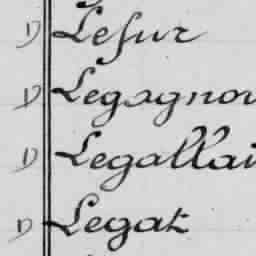 D Lefur
D Legagnou
D Legallai
D Legat